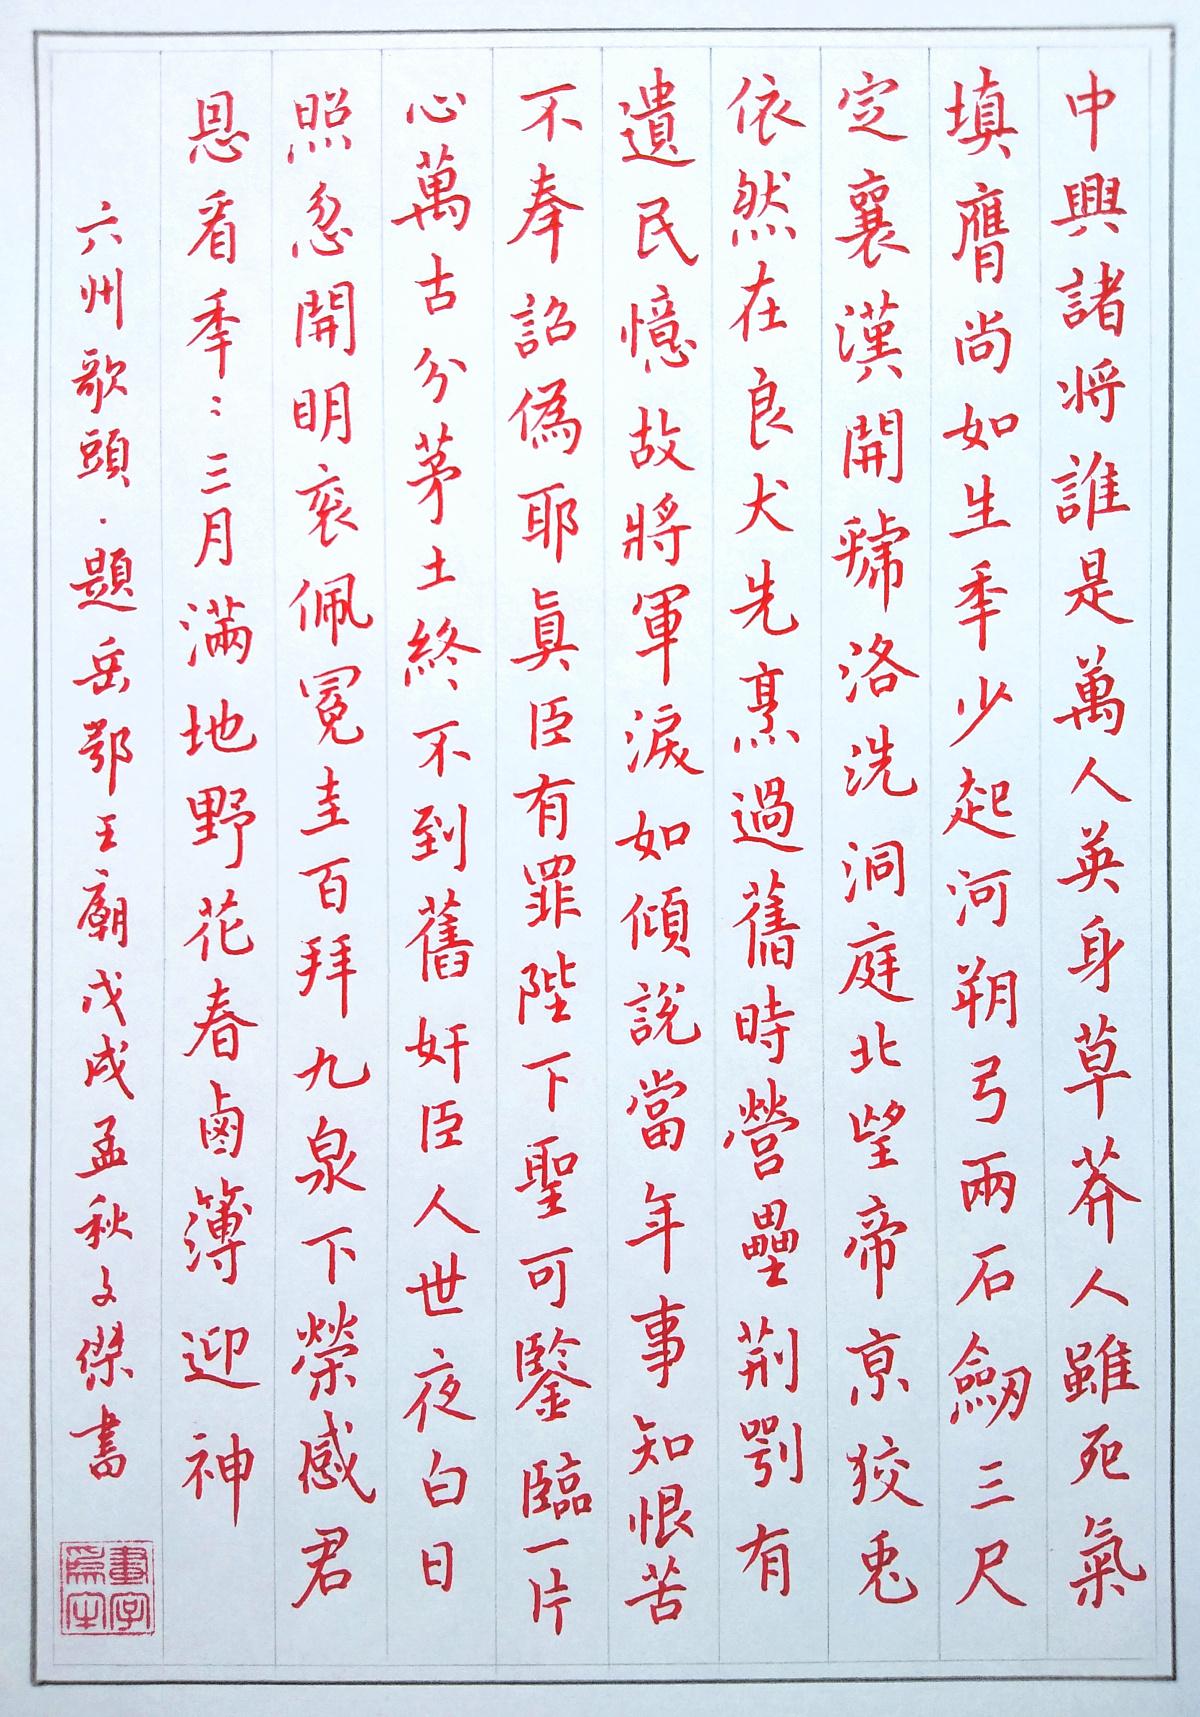 中興諸將誰是萬人英身草莽人雖死氣
填膺尚如生年少起河朔弓兩石劒三尺
定襄漢開虢洛洗洞庭北望帝京狡兎
依然在良犬先烹過舊時營壘荆鄂有
遺民憶故將軍淚如傾說當年事知恨苦
不奉詔偽耶眞臣有罪陛下聖可鑒臨一片
心萬古分茅土終不到舊奸臣人世夜白日
照忽開明衮佩冕圭百拜九泉下榮感君
恩看年〻三月滿地野花春鹵簿迎神
六州歌頭·題岳鄂王廟戊戌孟秋文傑書